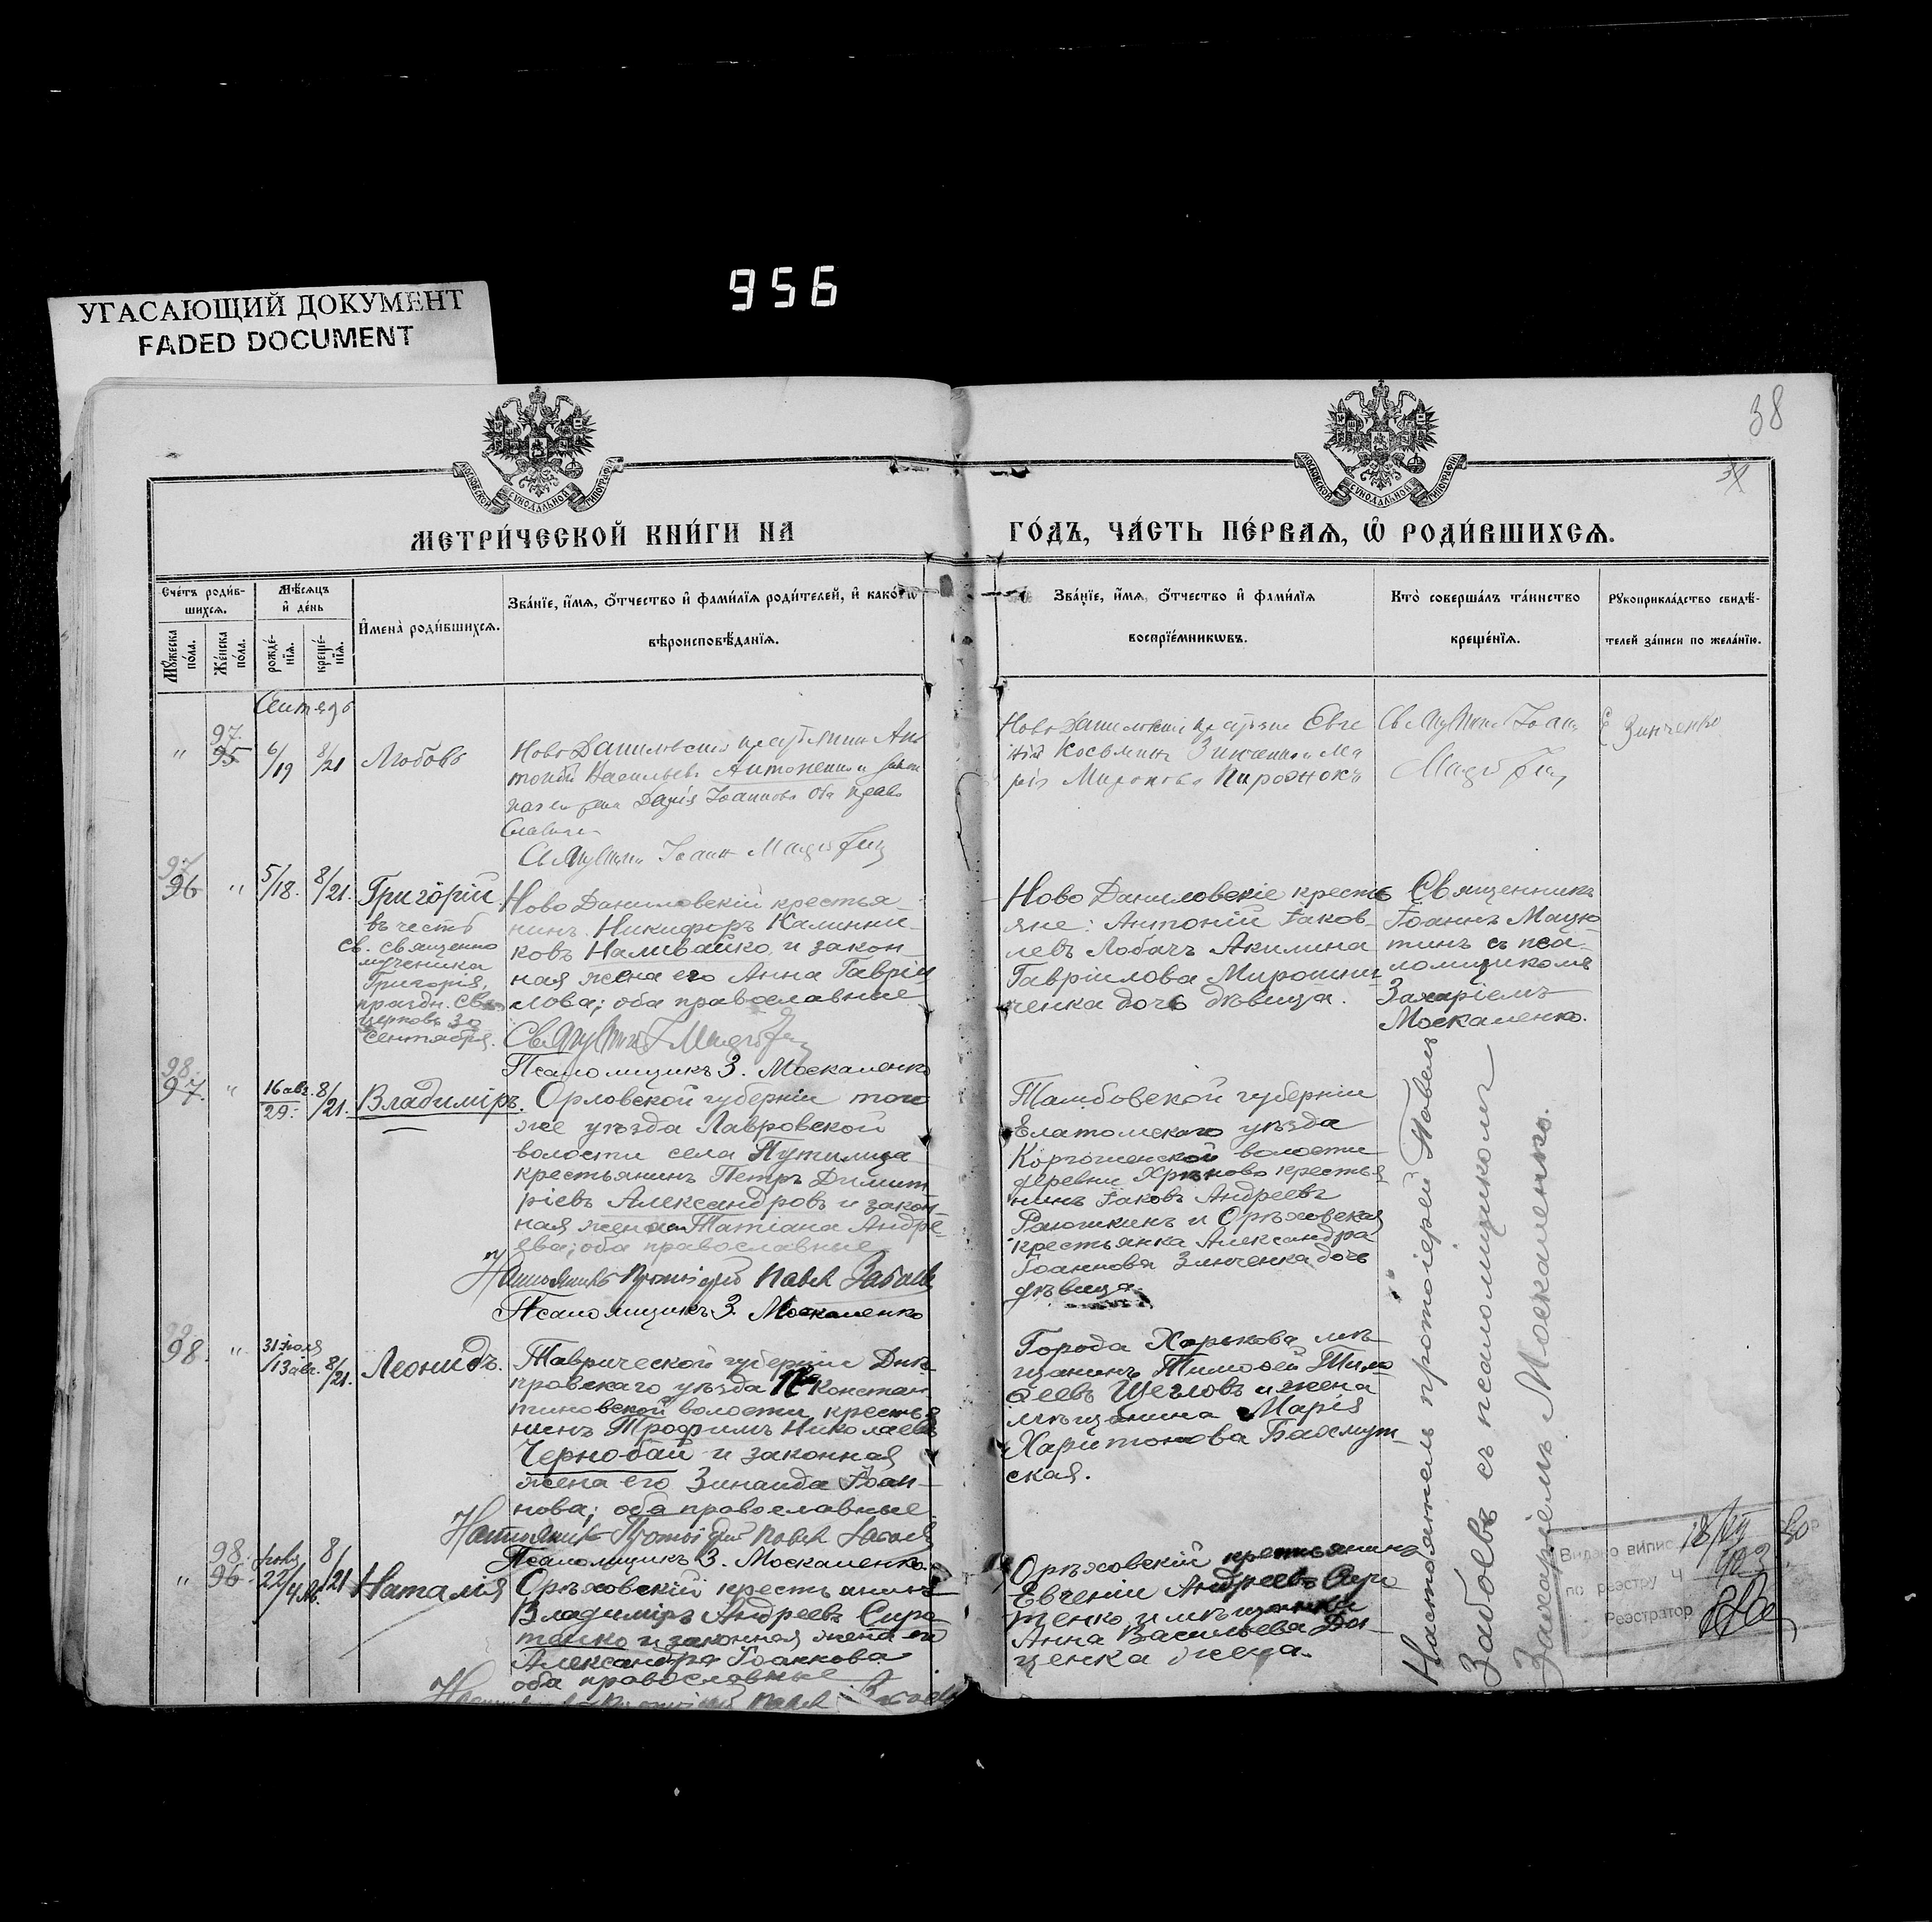 956
УГАСАЮЩИЙ ДОКУМЕНТ
FADED DOCUMENT
38
МОСКОВСКОЙ СѴНОДАЛЬНОЙ ТИПОГРАФІИ
МОСКОВСКОЙ СѴНОДАЛЬНОЙ ТИПОГРАФІИ
МЕТРИ́ЧЕСКОЙ КНИ́ГИ НА
ГО́ДЪ, ЧА́СТЬ ПЕ́РВАЯ, Ѡ҆ РОДИ́ВШИХСЯ.
Сче́тъ роди́в-
шихся.
Мꙋ́жеска
по́ла.
Же́нска
по́ла.
Мѣ́сяцъ
и҆ де́нь
рожде́-
нїя.
креще́-
нїя.
И҆мена̀ роди́вшихся.
Зва́нїе, и҆́мя, ѻ҆́тчество и҆ фами́лїя роди́телей, и҆ како́гѡ
вѣроисповѣ́данїя.
Зва́нїе, и҆́мя, ѻ҆́тчество и҆ фами́лїя
воспрїе́мникѡвъ.
Кто̀ соверша́лъ та́инство
креще́нїя.
Рꙋкоприкла́дство свидѣ́-
телей за́писи по жела́нїю.
Сентябрь
97.
"
95
6/19
8/21
Любовь
Ново Даниловскій крестьянинъ Ан
тоній Васильевъ Антоненко и закон
ная жена Дарія Іоаннова оба право
славные
Іоаннъ
Ново Даниловскіе крестьяне Евге
ній Косьминъ Зинченко и Ма
рія Миронова Пирожокъ
Іоаннъ
Е Зинченко
97
96
"
5/18.
8/21.
Григорій
въ честь
св. священно
мученика
Григорія,
праздн. св.
церковь 30
Сентября.
Ново Даниловскій крестья-
нинъ Никифоръ Калинни-
ковъ Наливайко, и закон
ная жена его Анна Гавріи
лова; оба православные
Псаломщикъ З. Москаленко
Ново Даниловскіе крестья
яне: Антоній Іаков-
левъ Лобачъ Акилина
Гавріилова Мирошни-
ченка дочь дѣвица.
Священникъ
Іоаннъ Мацю
тинъ съ пса-
ломщикомъ
Захаріемъ
Москаленко.
98.
97.
"
16 авг.
29.
8/21.
Владиміръ.
Орловской губерніи того
же уѣзда Лавровской
волости села Путимца
крестьянинъ Петръ Димит
ріевъ Александровъ и закон-
ная жена Татіана Андре-
ева; оба православные
Настоятель Протоіерей Павелъ Забоевъ
Псаломщикъ З. Москаленко
Тамбовской губерніи
Елатомскаго уѣзда
волости
деревни Хрѣново крестья
нинъ Іаковъ Андреевъ
Раюшкинъ и Орѣховская
крестьянка Александра
Іоаннова Зинченка дочь
дѣвица.
Настоятель протоіерей Павелъ
Забоевъ съ псаломщикомъ
Захаріемъ Москаленко.
98.
"
31 іюля
13 авг.
8/21.
Леонидъ.
Таврической губерніи Днѣ-
провскаго уѣзда Констан
тиновской волости крестья
нинъ Трофимъ Николаевъ
Чернобай и законная
жена его Зинаида Іоан-
нова; оба православные
Настоятель Протоіерей Павелъ Забоевъ
Псаломщикъ З. Москаленко.
Города Харькова мѣ-
щанинъ Тимоѳей Тимо
ѳеевъ Щегловъ и жена
мѣщанина Марія
Харитонова Бахмут-
ская.
98.
"
96
22/4
8/21
Наталія
Орѣховскій крестьянинъ
Владиміръ Андреевъ Сиро
тенко и законная жена его
Александра Іоаннова
оба православные
Орѣховскій крестьянинъ
Евгеній Андреевъ Сиро
тенко и мѣщанка
Анна Васильева
ценка жена.
Видано випис
по реєстру Ч
Реєстратор